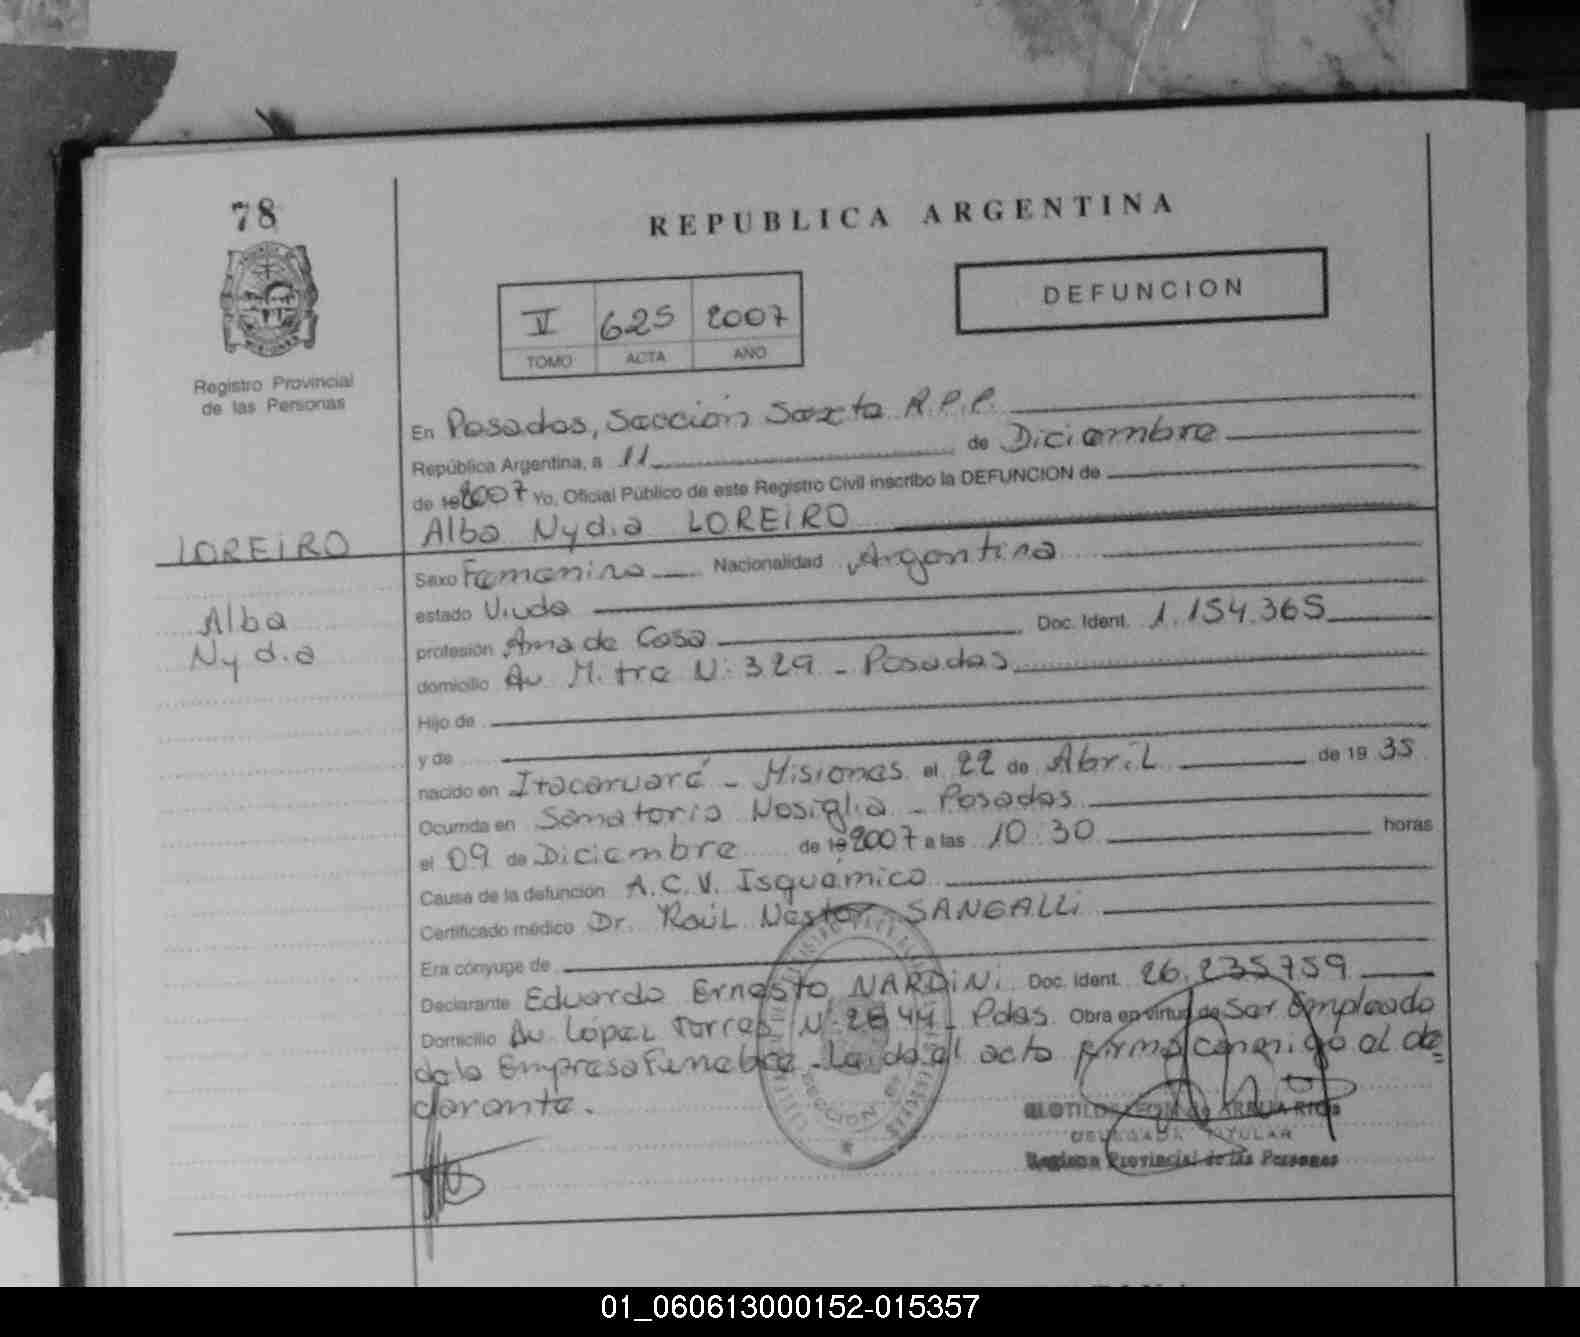 78
REPUBLICA ARGENTINA
DEFUNCION
V 625 2007
TOMO ACTA AÑO
Registro Provincial
de las Personas
En Posadas, Sección Sexta R.P.P.
República Argentina, a 11 de Diciembre
de 19 2007 Yo, Oficial Público de este Registro Civil inscribo la DEFUNCION de
Alba Nydia LOREIRO
LOREIRO
Alba
Nydia
Sexo Femenino Nacionalidad Argentina
estado Viuda
profesión Ama de Casa Doc. Ident. 1.154.365
domicilio Av Mitre N: 329 - Posadas
Hijo de
y de
nacido en Itacaruaré - Misiones el 22 de Abril de 19 35
Ocurrida en Sanatorio Nosiglia - Posadas
el 09 de Diciembre de 19 2007 a las 10:30 horas
Causa de la defunción A.C.V. Isquemico
Certificado médico Dr. Raúl Nestor SANGALLi
Era cónyuge de
Declarante Eduardo Ernesto NARDiNi Doc. Ident. 26.235759
Domicilio Av López Torres N: 2644 - Pdas. Obra en virtud de Ser Empleado
de la Empresa Funebre - Leida el acta firma conmigo el de=
clarante.
DELEGADA TITULAR
Registro Provincial de las Personas
01_060613000152-015357